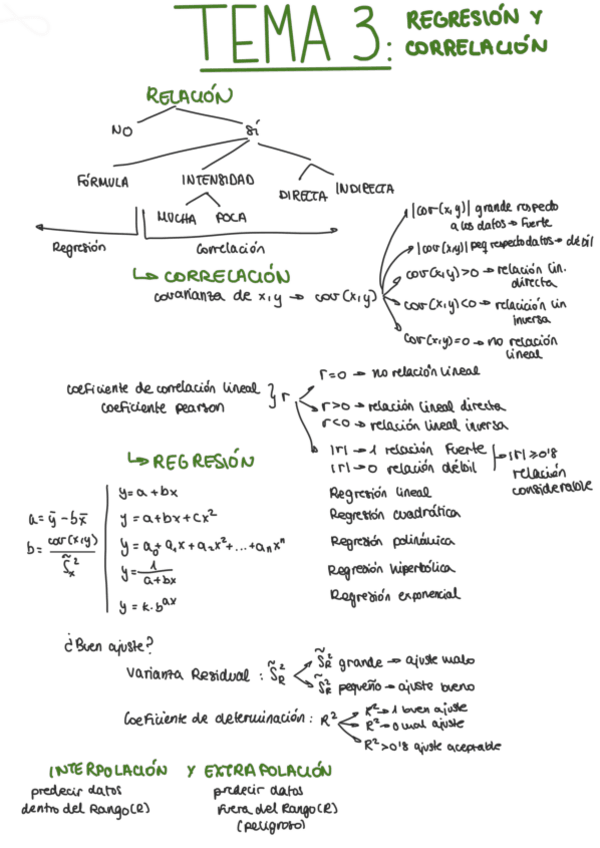 TEMA 3: REGRESIÓN Y
CORRELACIÓN
RELACIÓN
NO
SÍ
FÓRMULA
INTENSIDAD
DIRECTA
INDIRECTA
MUCHA
POCA
Regresión
Correlación
↳ CORRELACIÓN
covarianza de x,y → cov(x,y)
|cov(x,y)| grande respecto
a los datos → Fuerte
|cov(x,y)| peq respecto datos → débil
cov(x,y)>0 → relación lin.
directa
cov(x,y)<0 → relación lin
inversa
cov(x,y)=0 → no relación
lineal
coeficiente de correlación lineal
coeficiente pearson
} r
r=0 → no relación lineal
r>0 → relación lineal directa
r<0 → relación lineal inversa
|r| → 1 relación Fuerte
|r| → 0 relación débil
→ |r| ≥ 0'8
relación
considerable
↳ REGRESIÓN
a = ȳ - bx̄
b = cov(x,y) / S̃x²
y = a + bx Regresión lineal
y = a + bx + cx² Regresión cuadrática
y = a₀ + a₁x + a₂x² + ... + aₙxⁿ Regresión polinómica
y = 1 / a + bx Regresión hiperbólica
y = k · b^ax Regresión exponencial
¿Buen ajuste?
Varianza Residual : S̃R²
S̃R² grande → ajuste malo
S̃R² pequeño → ajuste bueno
Coeficiente de determinación : R²
R² → 1 buen ajuste
R² → 0 mal ajuste
R² > 0'8 ajuste aceptable
INTERPOLACIÓN Y EXTRAPOLACIÓN
predecir datos
dentro del Rango(R)
predecir datos
fuera del Rango(R)
(peligroso)